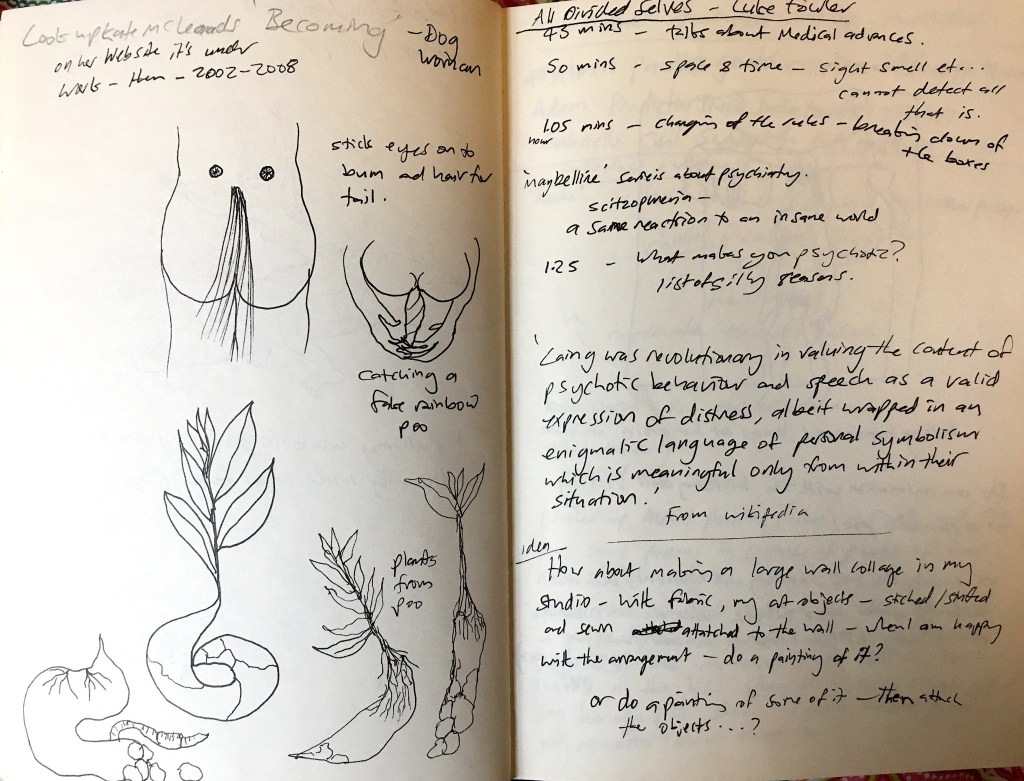 Look up Kate McLeods 'Becoming'
on her website, it's under
work - then - 2002-2008
- Dog
woman
stick eyes on to
bum ad hair for
tail.
catching a
fake rainbow
poo
plants
from
poo
All Divided Selves - Luke Fowler
45 mins - talks about Medical advances.
50 mins - space & time - sight smell et...
cannot detect all
that is.
1.05 mins - changing of the rules - breaking down of
hour
the boxes
'maybelline' series about psychiatry.
scitzophrenia -
a sane reaction to an insane world
1.25 - What makes you psychotic?
list of silly reasons.
'Laing was revolutionary in valuing the content of
psychotic behaviour and speech as a valid
expression of distress, albeit wrapped in an
enigmatic language of personal symbolism
which is meaningful only from within their
situation.'
From wikipedia
idea
How about making a large wall collage in my
studio - with fabric, my art objects - stiched/stuffed
ad sewn attatched to the wall - when I am happy
with the arrangement - do a painting of it?
or do a painting of some of it - then attach
the objects...?